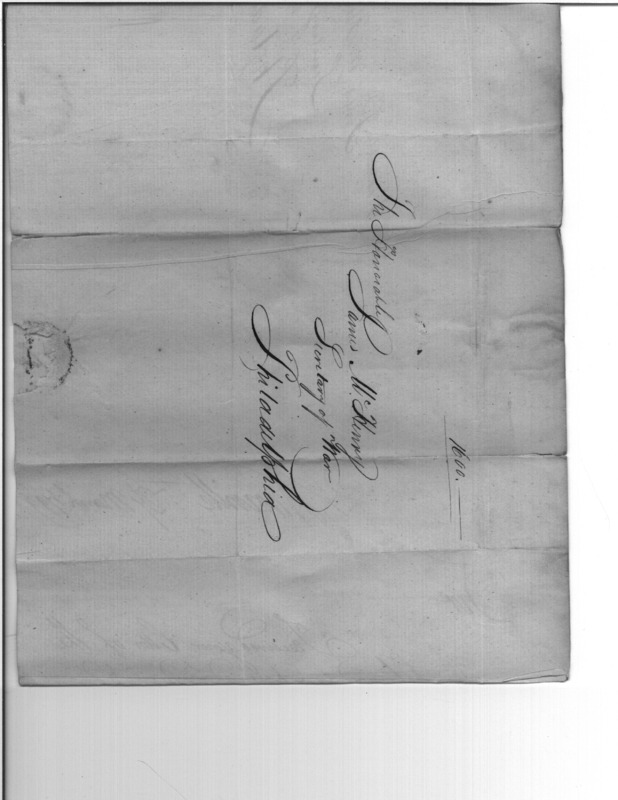 1600.
The Honourable
James McHenry
Secretary of War
Philadelphia